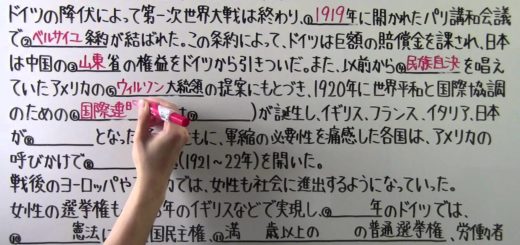 ドイツの降伏によって第一次世界大戦は終わり,①1919年に開かれたパリ講和会議
で②ベルサイユ条約が結ばれた。この条約によって、ドイツは巨額の賠償金を課され、日本
は中国の③山東省の権益をドイツから引きついだ。また、以前から④民族自決を唱え
ていたアメリカの⑤ウィルソン大統領の提案にもとづき、1920年に世界平和と国際協調
のための⑥国際連 )が誕生し、イギリス、フランス、イタリア、日本
が となった もに、軍縮の必要性を痛感した各国は、アメリカの
呼びかけで (1921〜22年)を開いた。
戦後のヨーロッパや カでは、女性も社会に進出するようになっていった。
女性の選挙権も 8年のイギリスなどで実現し、 年のドイツでは、
憲法に 国民主権、満 歳以上の の普通選挙権、労働者